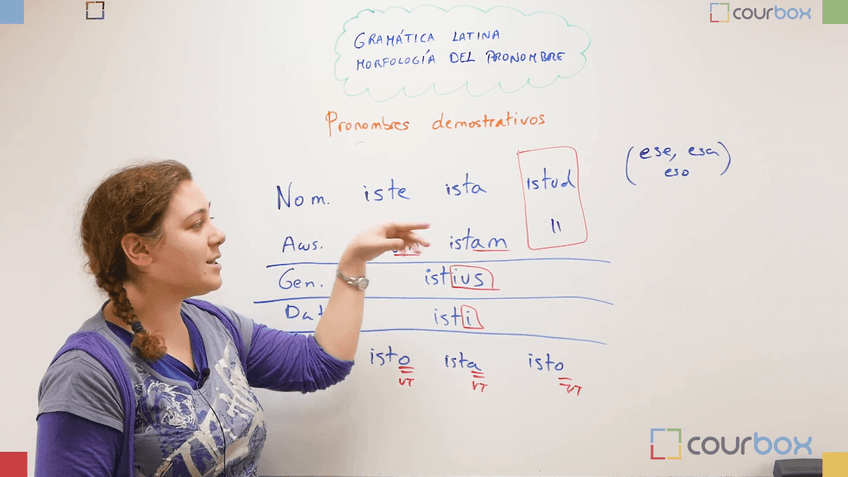 courbox
GRAMÁTICA LATINA
MORFOLOGÍA DEL PRONOMBRE
Pronombres demostrativos
(ese, esa)
eso
Nom. iste ista istud
Acus. istam "
Gen. istius
Dat isti
isto ista isto
VT VT VT
courbox